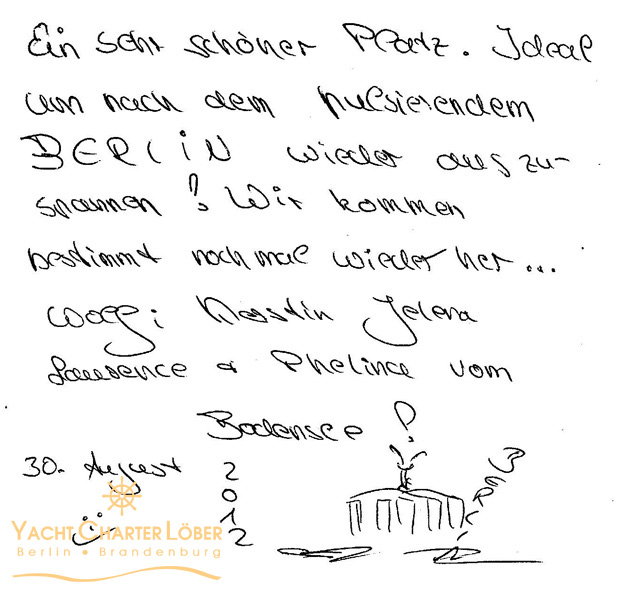 Ein sehr schöner Platz. Ideal
um nach dem pulsierendem
BERLIN wieder auszu-
spannen! Wir kommen
bestimmt nochmal wieder her...
Wolfi Kerstin Jelena
Laurence & Pheline vom
Bodensee!
30. August 2012
BERLIN
YACHT CHARTER LÖBER
Berlin • Brandenburg